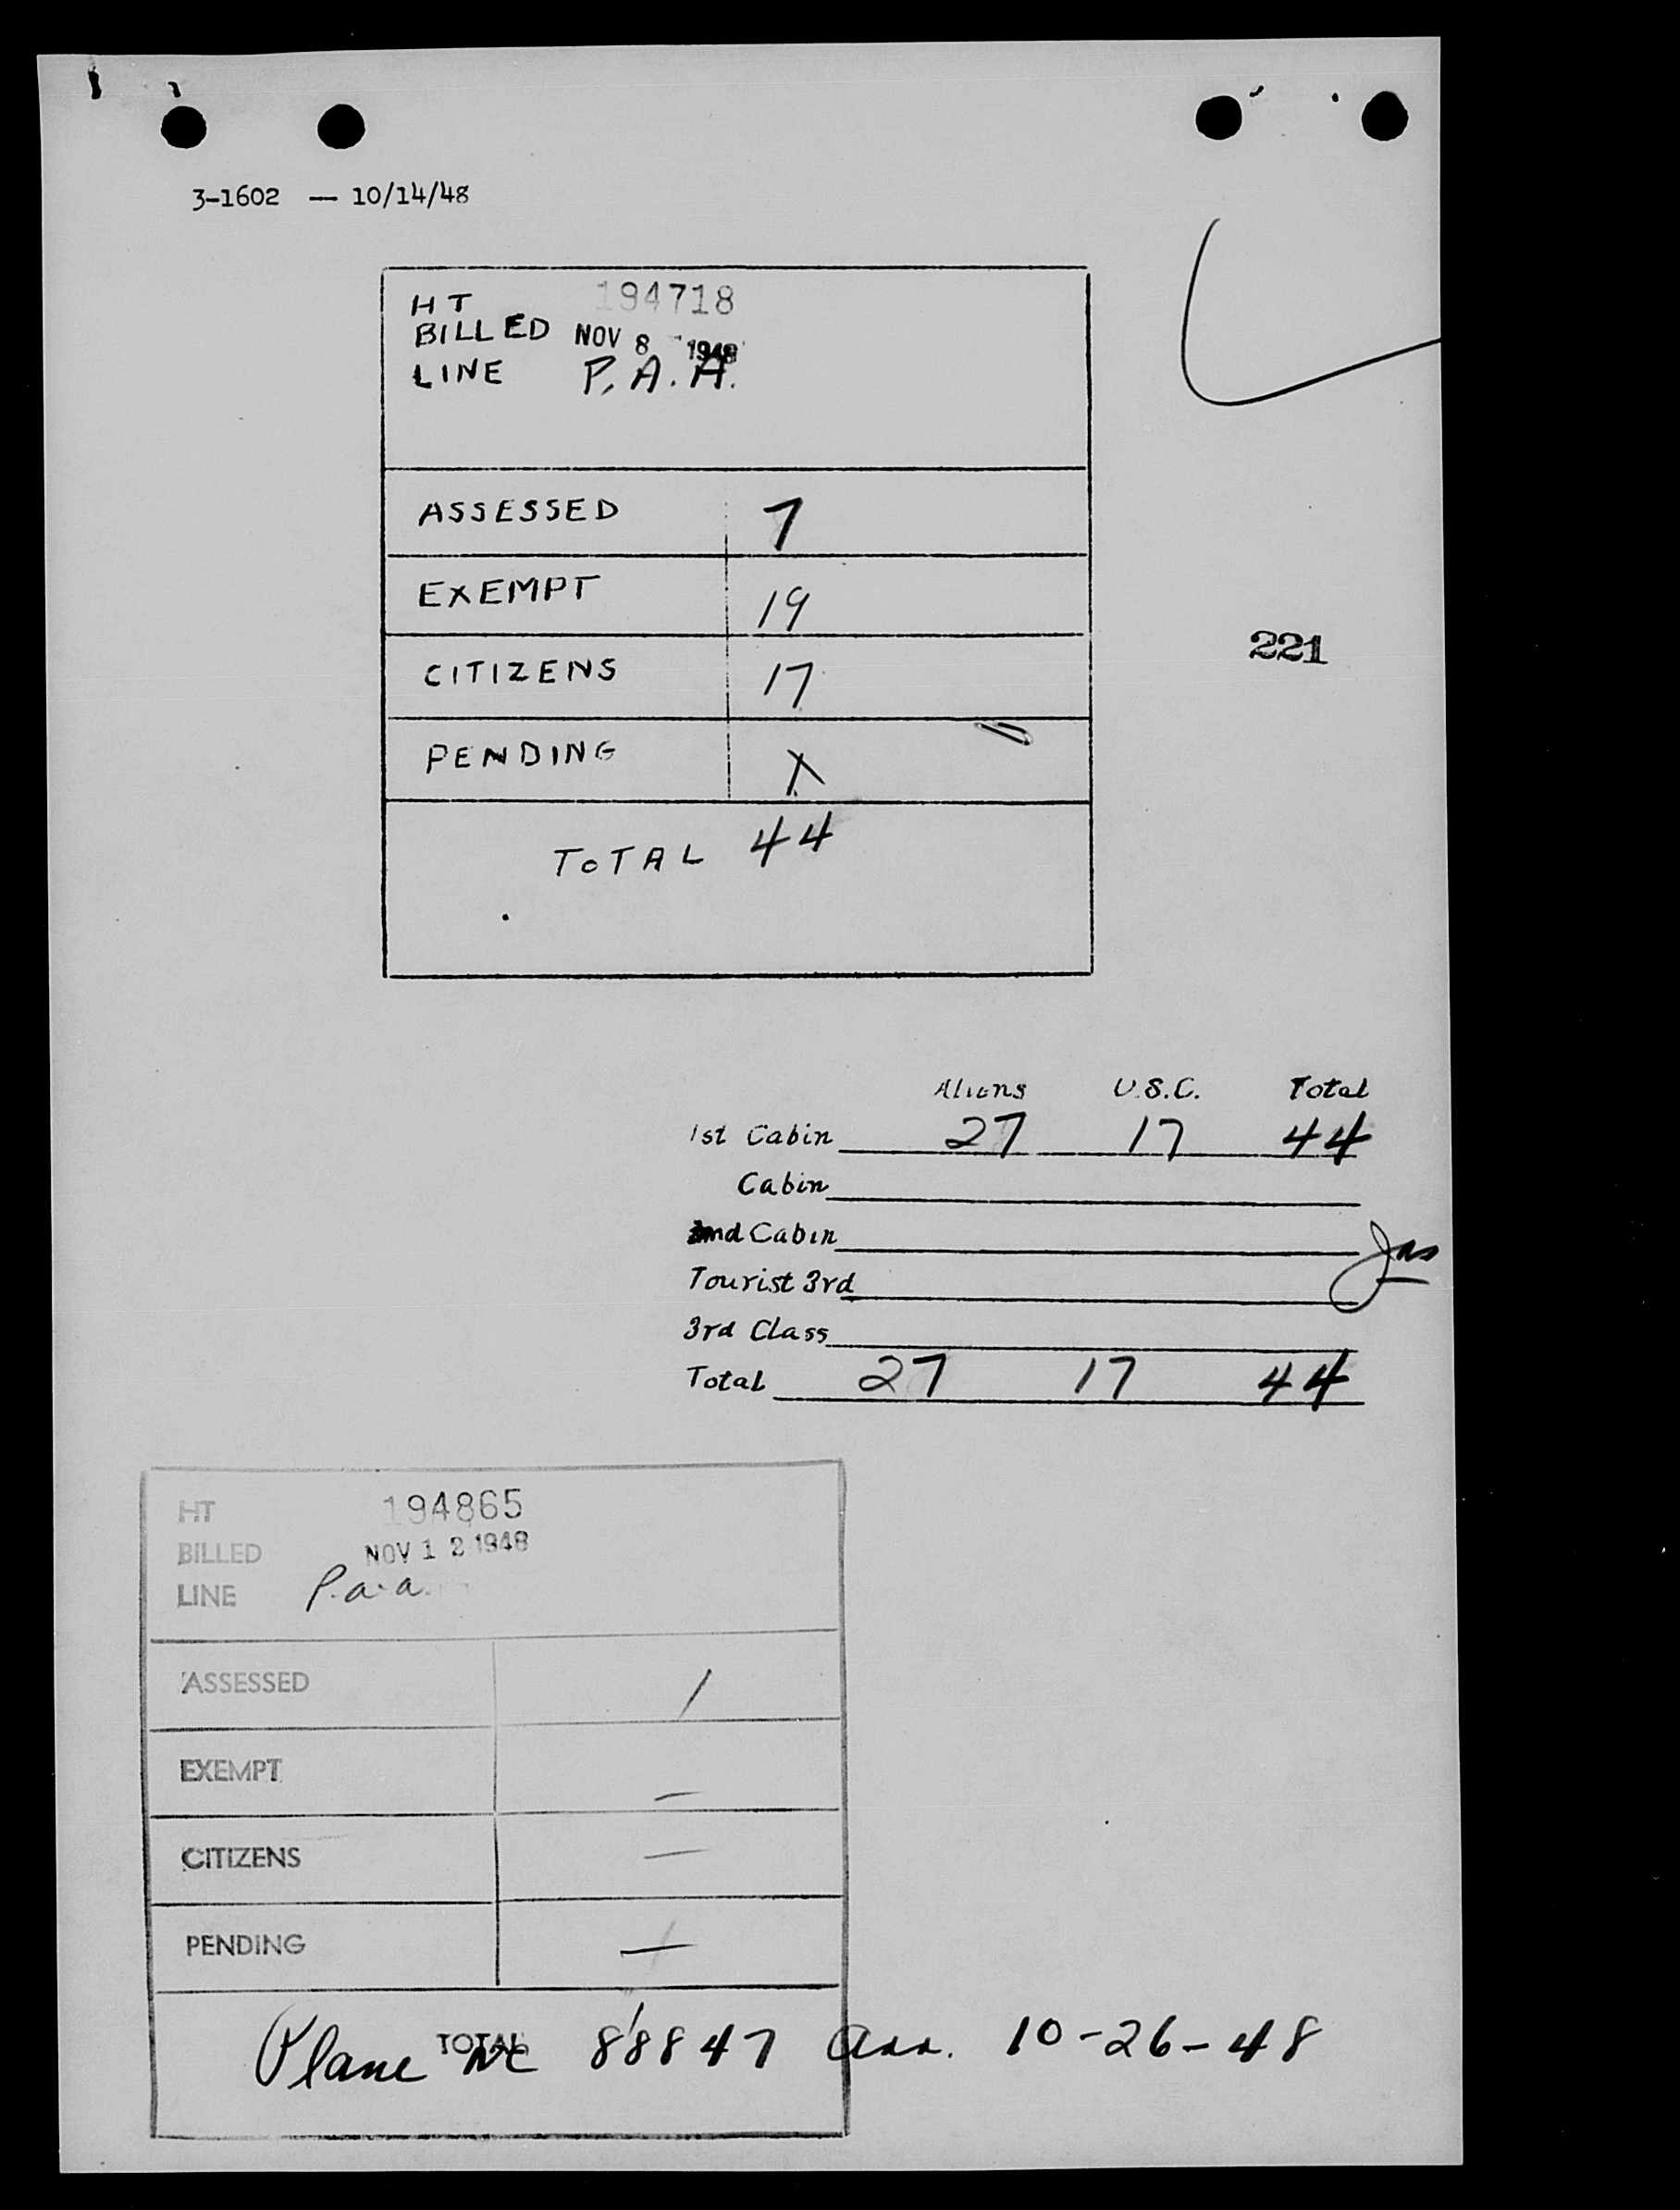 3-1602 — 10/14/48
HT 194718
BILLED NOV 8 1948
LINE P.A.A.
ASSESSED 7
EXEMPT 19
CITIZENS 17
221
PENDING X
TOTAL 44
Aliens U.S.C. Total
1st Cabin 27 17 44
Cabin
2nd Cabin
Tourist 3rd
3rd Class
Total 27 17 44
HT 194865
BILLED NOV 12 1948
LINE P.a.a.
ASSESSED 1
EXEMPT —
CITIZENS —
PENDING —
TOTAL 1
Plane NC 88847 Arr. 10-26-48